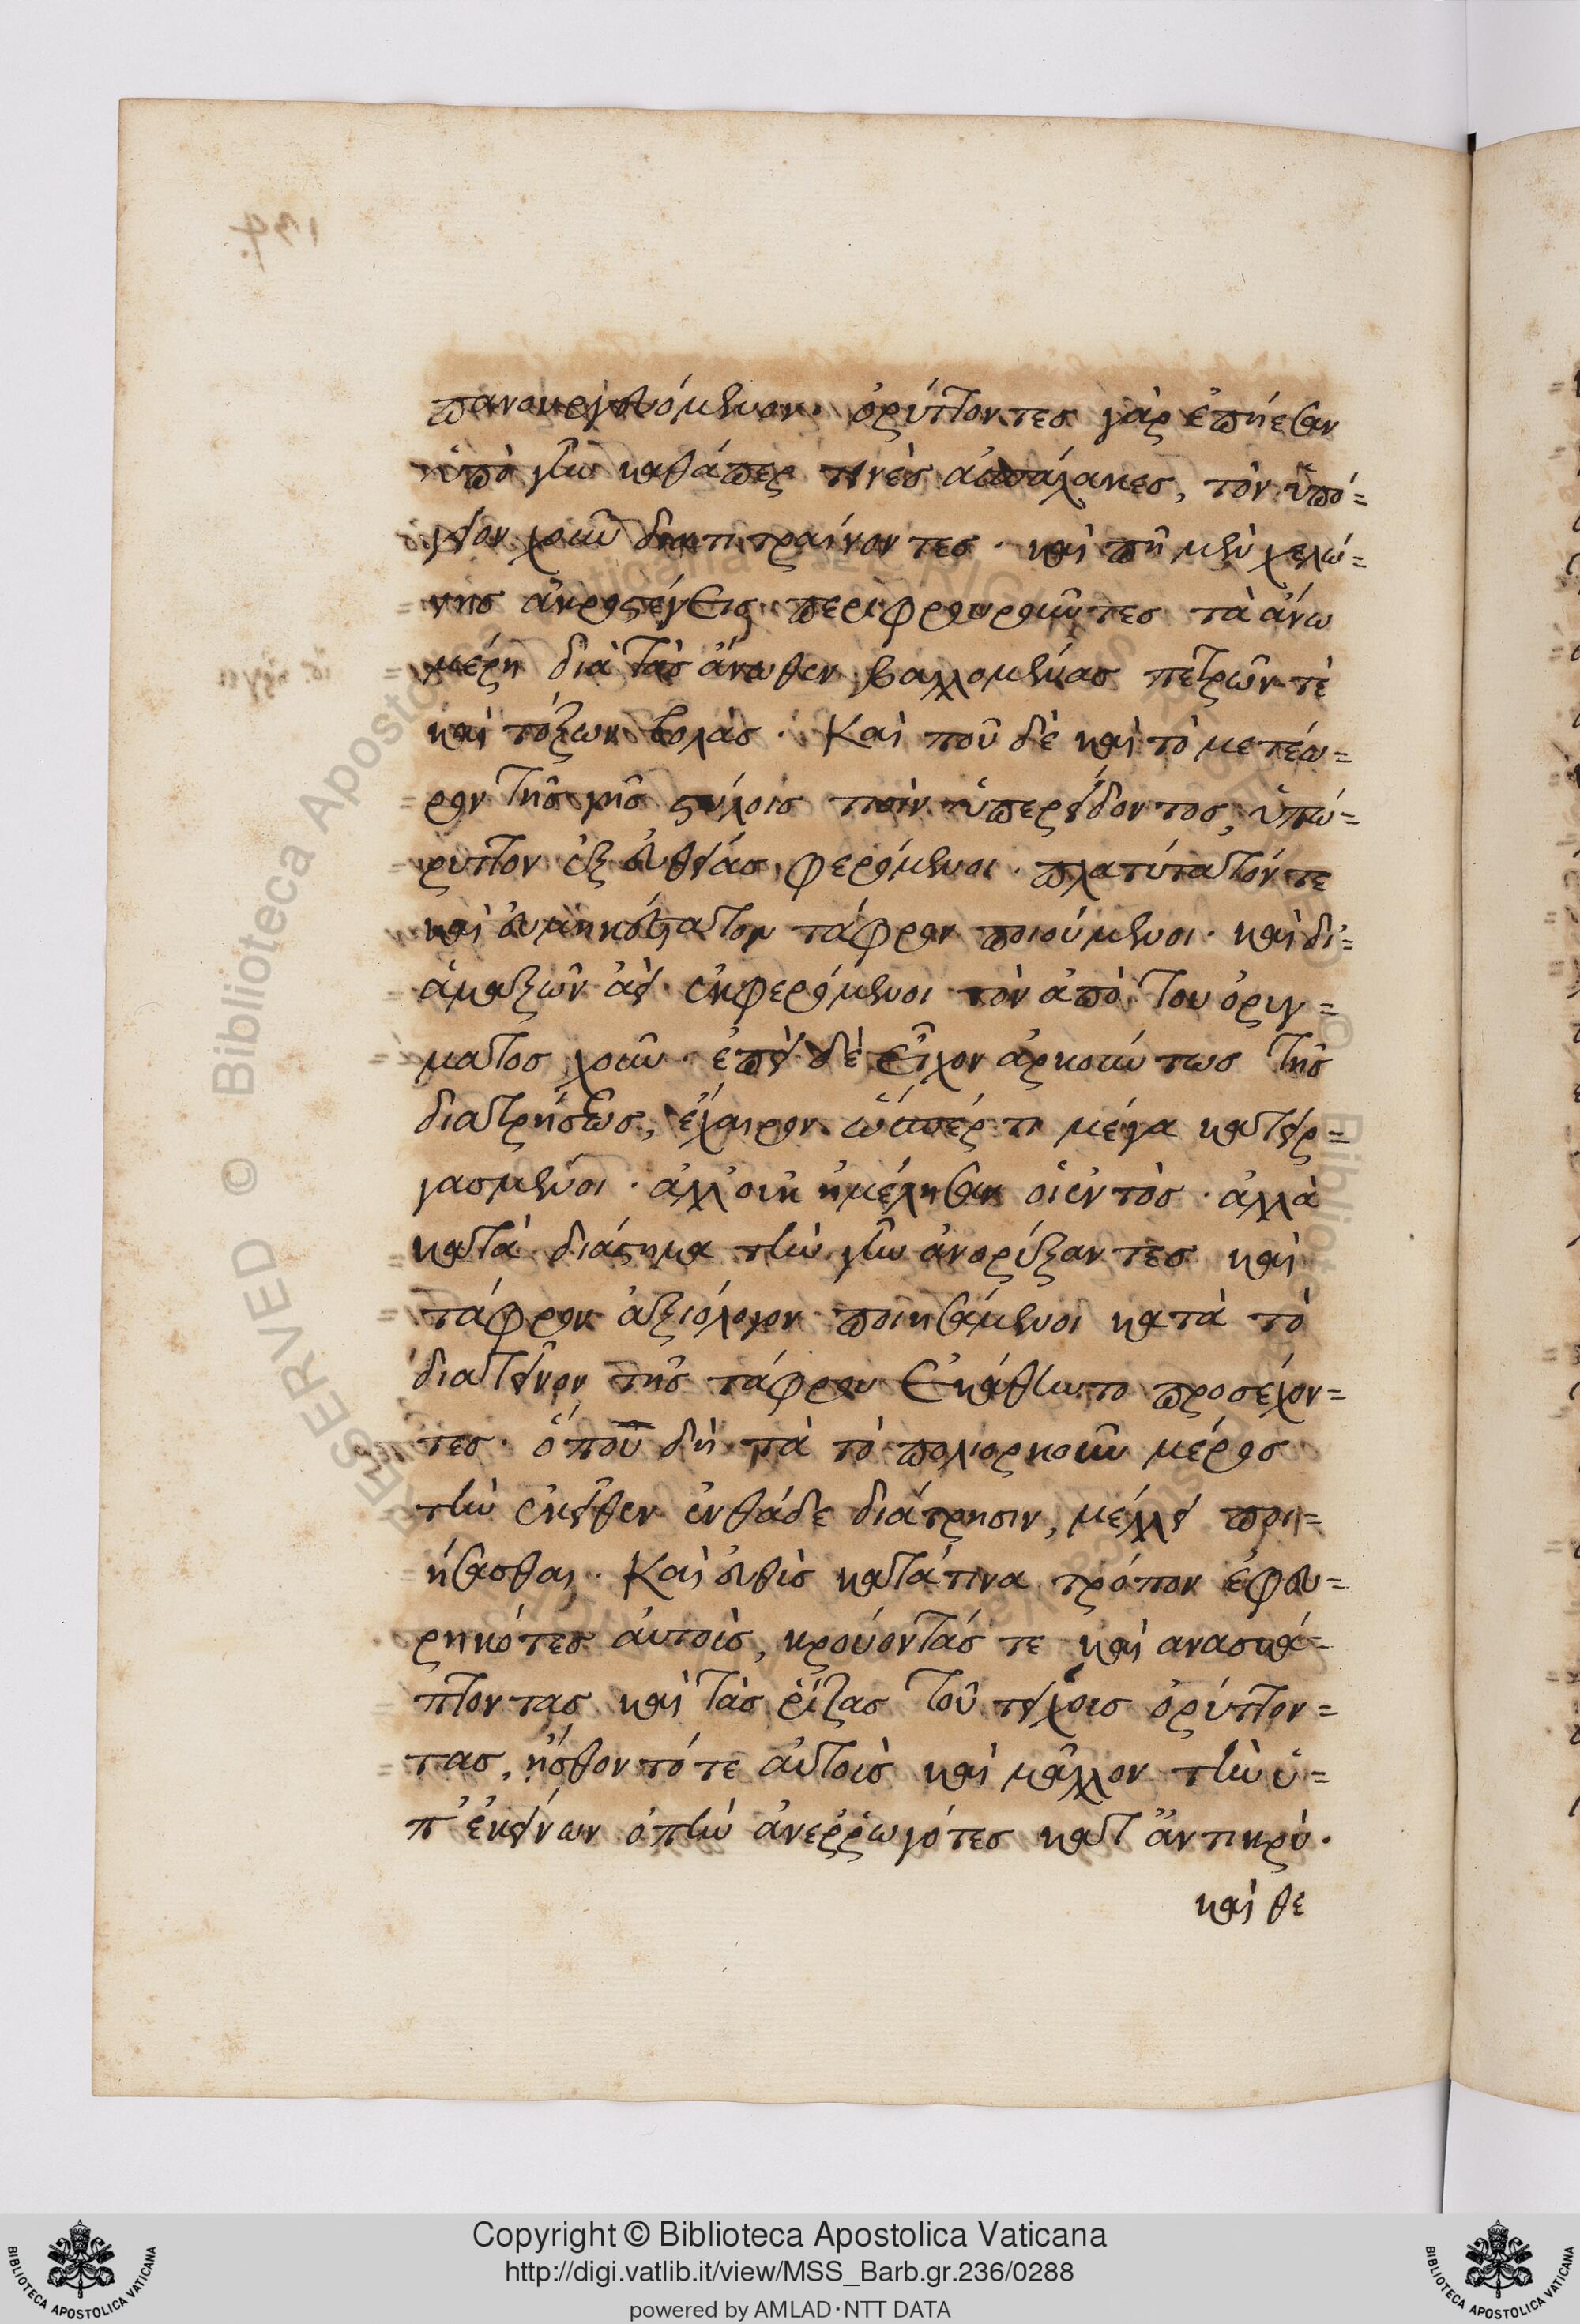 πανουργευόμενον· ὀρύττοντες γὰρ ἐπήεσαν
ὑπὸ γῆν καθάπερ τινὲς ἀσπάλακες, τὸν ὑπό=
γειον χοῦν διατιτραίνοντες · καὶ πῆ μὲν χελώ=
νης ἀκροστέγεις περιφρουροῦντες τὰ ἄνω
μέρη διὰ τὰς ἄνωθεν βαλλομένας πετρῶν τὲ
καὶ τόξων βολὰς · Καὶ ποῦ δὲ καὶ τὸ μετέω=
ρον τῆς γῆς στύλοις τισὶν ὑπερείδοντος, ὑπώ=
ρυττον ἐξ εὐθείας φερόμενοι · πλατύτατόν τε
καὶ εὐμηκέστατον τάφρον ποιούμενοι · καὶ δι=
ἁμαξῶν ἀεὶ ἐκφερόμενοι τὸν ἀπὸ τοῦ ὀρυγ=
ματος χοῦν · ἐπεὶ δὲ εἶχον ἀρκούντως τῆς
διατρήσεως, ἔχαιρον ὥσπέρ τι μέγα κατειρ=
γασμένοι · ἀλλ' οὐκ ἠμέλησαν οἱ ἐντὸς · ἀλλὰ
κατὰ διάστημα τὴν γῆν ἀνορύξαντες καὶ
τάφρον ἀξιόλογον ποιησάμενοι κατὰ τὸ
διατεῖνον τῆς τάφρου ἐκάθηντο προσέχον=
τες · ὅπου δὴ τὰ τὸ πολιορκοῦν μέρος
τὴν ἐκεῖθεν ἐνθάδε διάτρησιν, μέλλει ποι=
ήσασθαι · Καὶ εὐθὺς κατά τινα τρόπον ἐφευ=
ρηκότες αὐτοὺς, κρούοντάς τε καὶ ανασκά=
πτοντας καὶ τὰς ῥίζας τοῦ τείχους ὀρύττον=
τας, ᾔσθοντό τε αὐτοὺς καὶ μᾶλλον τὴν ὑ=
π' ἐκείνων ὀπὴν ἀνεῤῥωγότες κατ' ἄντικρὺ ·
καὶ θε
Copyright © Biblioteca Apostolica Vaticana
http://digi.vatlib.it/view/MSS_Barb.gr.236/0288
powered by AMLAD·NTT DATA